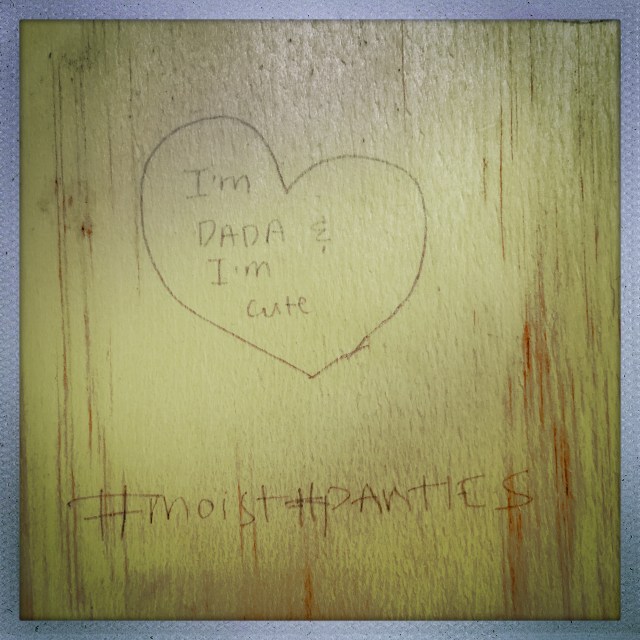 I'm
DADA &
I'm
cute
#moist#PANTIES